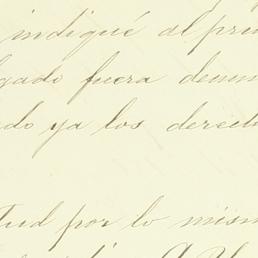 indiqué al pri
gado fuera denun
do ya los derech
tud por lo mism